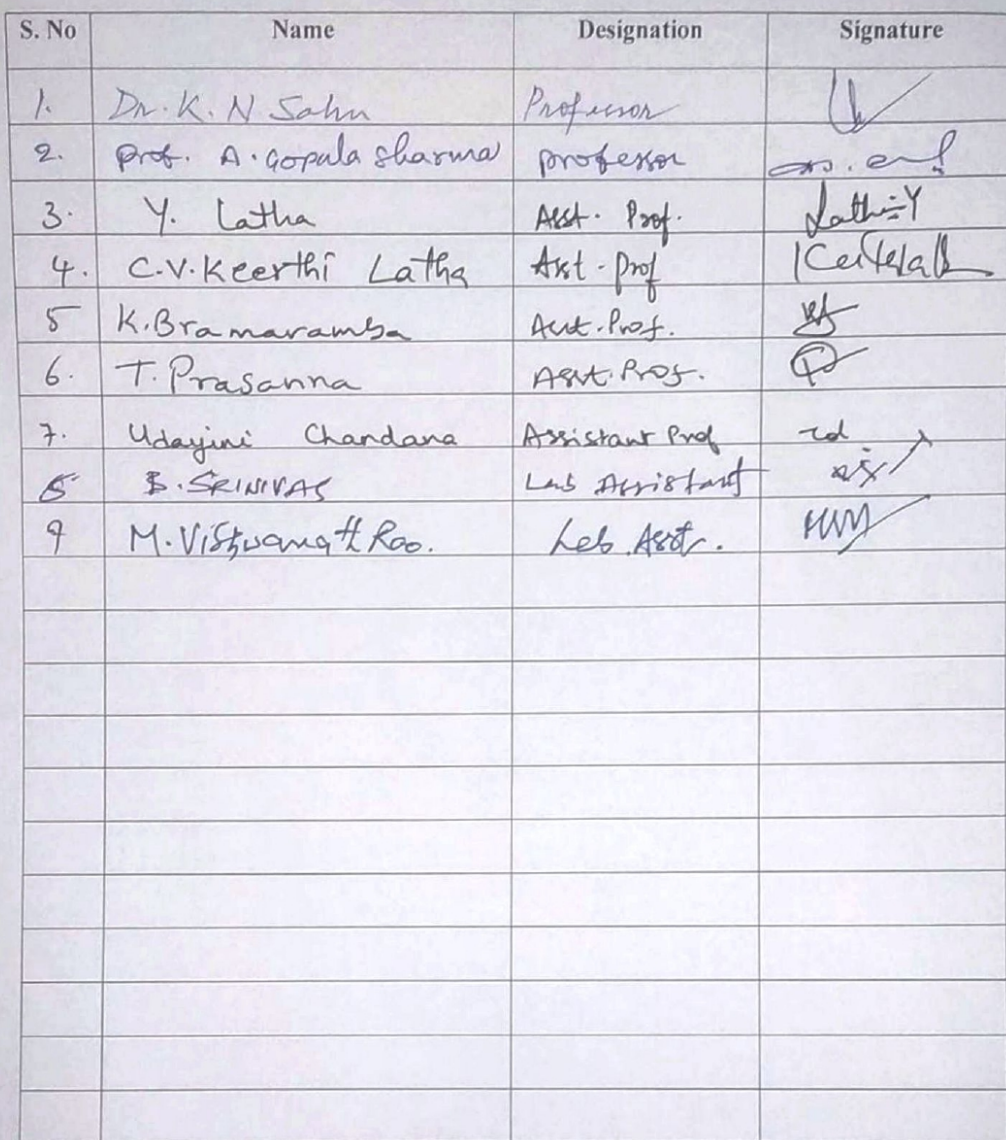 S. No Name Designation Signature
1. Dr. K. N. Sahu Professor
2. Prof. A. Gopala Sharma professor
3. Y. Latha Asst. Prof. Latha Y
4. C.V. Keerthi Latha Asst. Prof
5 K. Bramaramba Asst. Prof.
6. T. Prasanna Asst. Prof.
7. Udayini Chandana Assistant Prof
8 B. SRINIVAS Lab Assistant
9 M. Vishwanath Rao. Lab Asst.